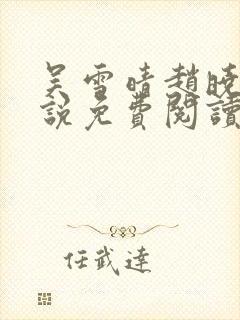 吴雪晴趙曉
說免費閱讀
任武達